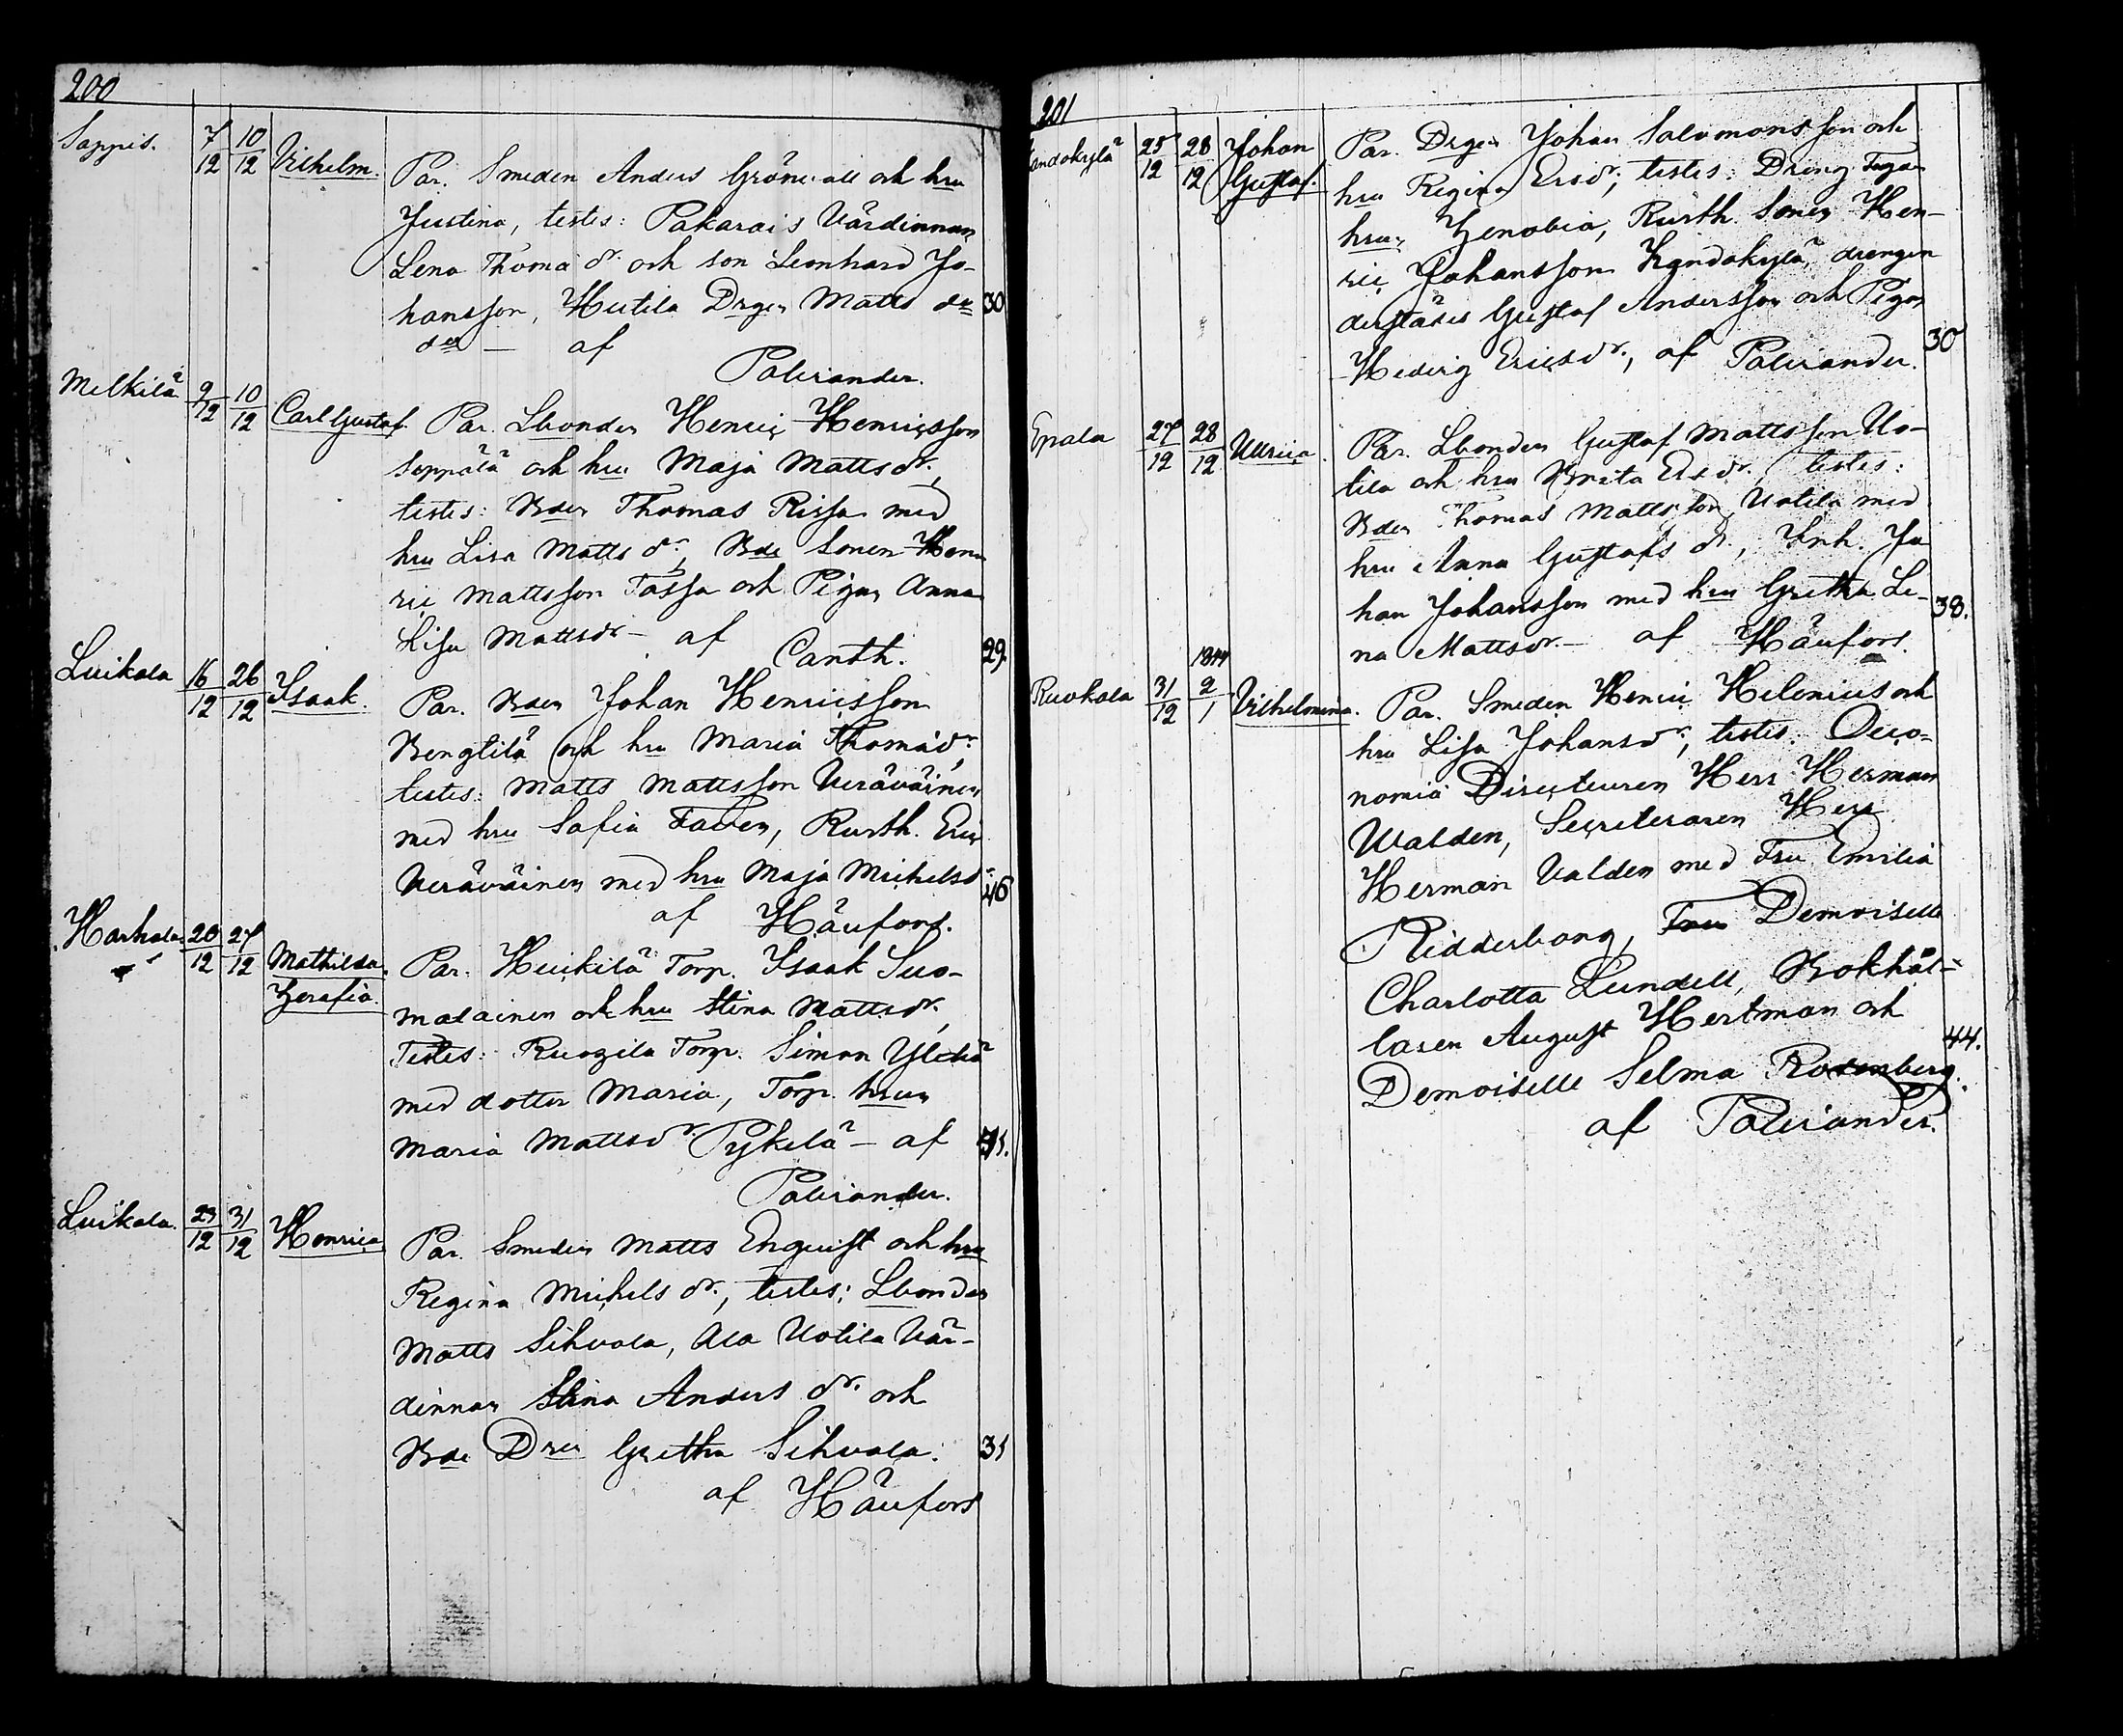 200
Sappis. 7/12 10/12 Vilhelm. Par. Smeden Anders Grönvall och hru
Justina, testes: Pakarais Värdinnan
Lena Thomä dr och son Leonhard Jo-
hansson, Hutila Drgen Matts 30
af
Palviander.
Melkilä 9/12 10/12 Carl Gustaf. Par. Lbonden Henric Henricsson
Seppälä och hru Maja Mattsdr,
testes: Bden Thomas Rissa med
hru Lisa Matts dr, Bde Sonen Hen
ric Mattsson Tassa och Pigan Anna
Lisa Mattsdr – af Canth. 29.
Luikala 16/12 26/12 Isaak. Par. Bden Johan Henricsson
Bengtilä och hru Maria Thomädr,
testes: Matts Mattsson Veräväinen
med hru Safia, Rusth. Eric
Veräväinen med hru Maja Michelsdr 46
af Häufors.
Harhala 20/12 27/12 Mathilda Par. Huikilä Torp. Isaak Suo-
Zerafia. malainen och hru Stina Mattsdr,
Testes: Torp. Simon
med dotter Maria, Torp. hrun
Maria Mattsdr Pykilä – af
Palviander.
Luikala. 23/12 31/12 Henrica Par. Smeden Matts Enquist och hru
Regina Michels dr., testes; Lbonden
Matts Sihvola, Ala Uotila Vär-
dinnan Stina Anders dr. och
Bde Drn Gretha Sihvola. 31
af Häufors
201
Kandokylä 25/12 28/12 Johan Par. Drgen Johan Salomonsson och
Gustaf. hru Regina Ersdr; testes: Dräng
hrun Zenobia, Rusth. Sonen Hen-
ric Johansson Kandokylä, drengen
Gustaf Andersson och Pigan
Hedvig Ericsdr., af Palviander. 30
Epala 27/12 28/12 Ulrica. Par. Lbonden Gustaf Mattsson Uo-
tila och hru Brita Ersdr, testes:
Bden Thomas Mattsson Uotila med
hru Anna Gustafs dr, Inh. Jo
han Johansson med hru Gretha Le- 38.
na Mattsdr. – af Häufors.
1844
Ruokola 31/12 2/1 Vilhelmina. Par. Smeden Henric Helenius och
hru Lisa Johansdr, testes: Oeco-
nomiä Directeuren Herr Herman
Walden, Secreteraren Herr
Herman Valden med Fru Emilia
Ridderborg, Fru Demoiselle
Charlotta Lundell, Bokhål-
laren August Hertman och 44.
Demoiselle Selma Rosenberg.
af Palviander.